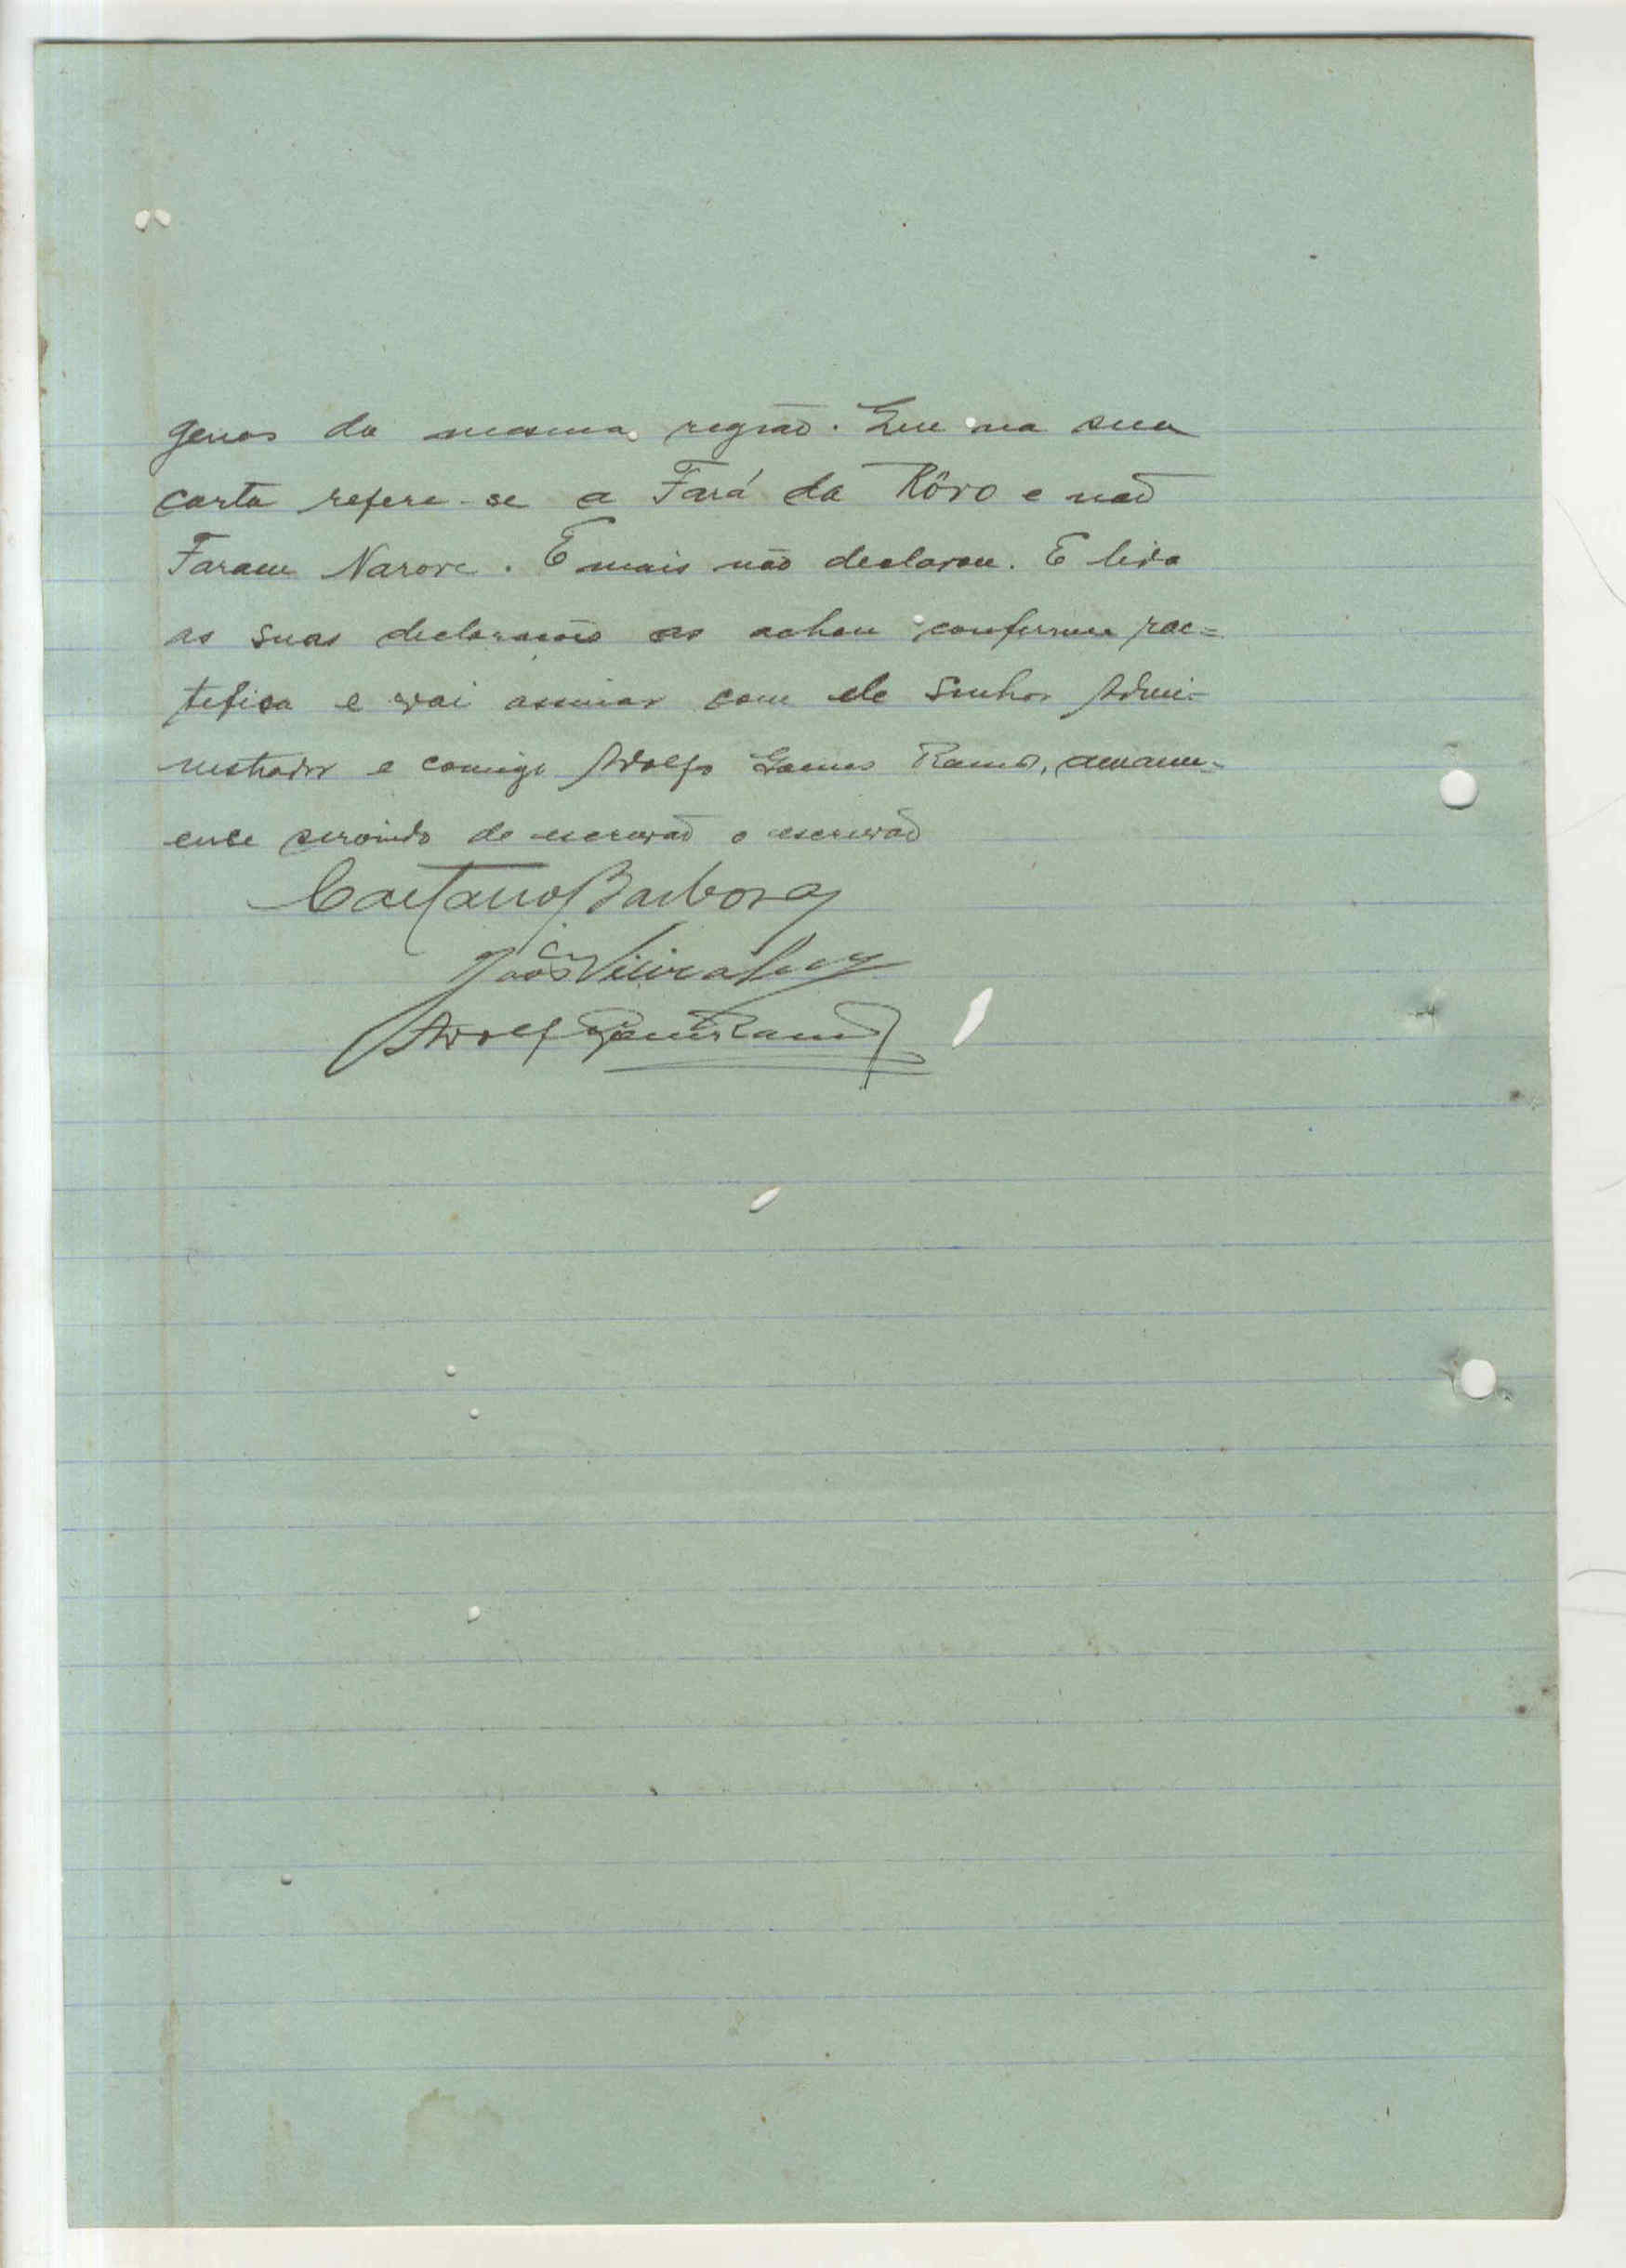 genas da mesma região. Que na sua
carta refere-se a Fará da Rôro e não
Faram Narore. E mais não declarou. E lida
as suas declarações as achou conforme rac=
tefica e vai assinar com ele Senhor Admi-
nistrador e comigo Adolfo Gomes Ramos, amanu-
ence servindo de escrivão o escrivão
Caetano Barbosa
João Vieira
Adolfo Gomes Ramos